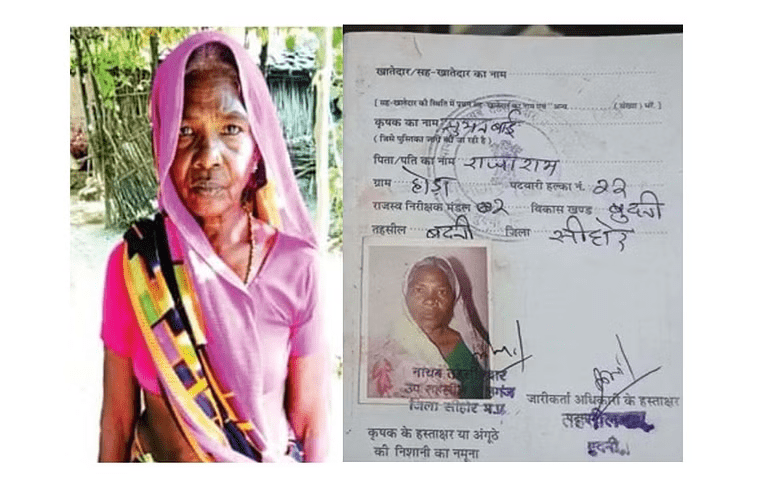 खातेदार/सह-खातेदार का नाम
[ सह-खातेदार की स्थिति में प्रथम सह-खातेदार का नाम एवं अन्य (संख्या) धरें. ]
कृषक का नाम सुमन बाई
( जिसे पुस्तिका जारी की जा रही है )
पिता/पति का नाम राजाराम
ग्राम होड़ा पटवारी हल्का नं. 22
राजस्व निरीक्षक मंडल 2 विकास खण्ड बुदनी
तहसील बुदनी जिला सीहोर
नायब तहसीलदार
उप तहसील
जिला सीहोर म.प्र.
जारीकर्ता अधिकारी के हस्ताक्षर
बुदनी.
कृषक के हस्ताक्षर या अंगूठे
की निशानी का नमूना